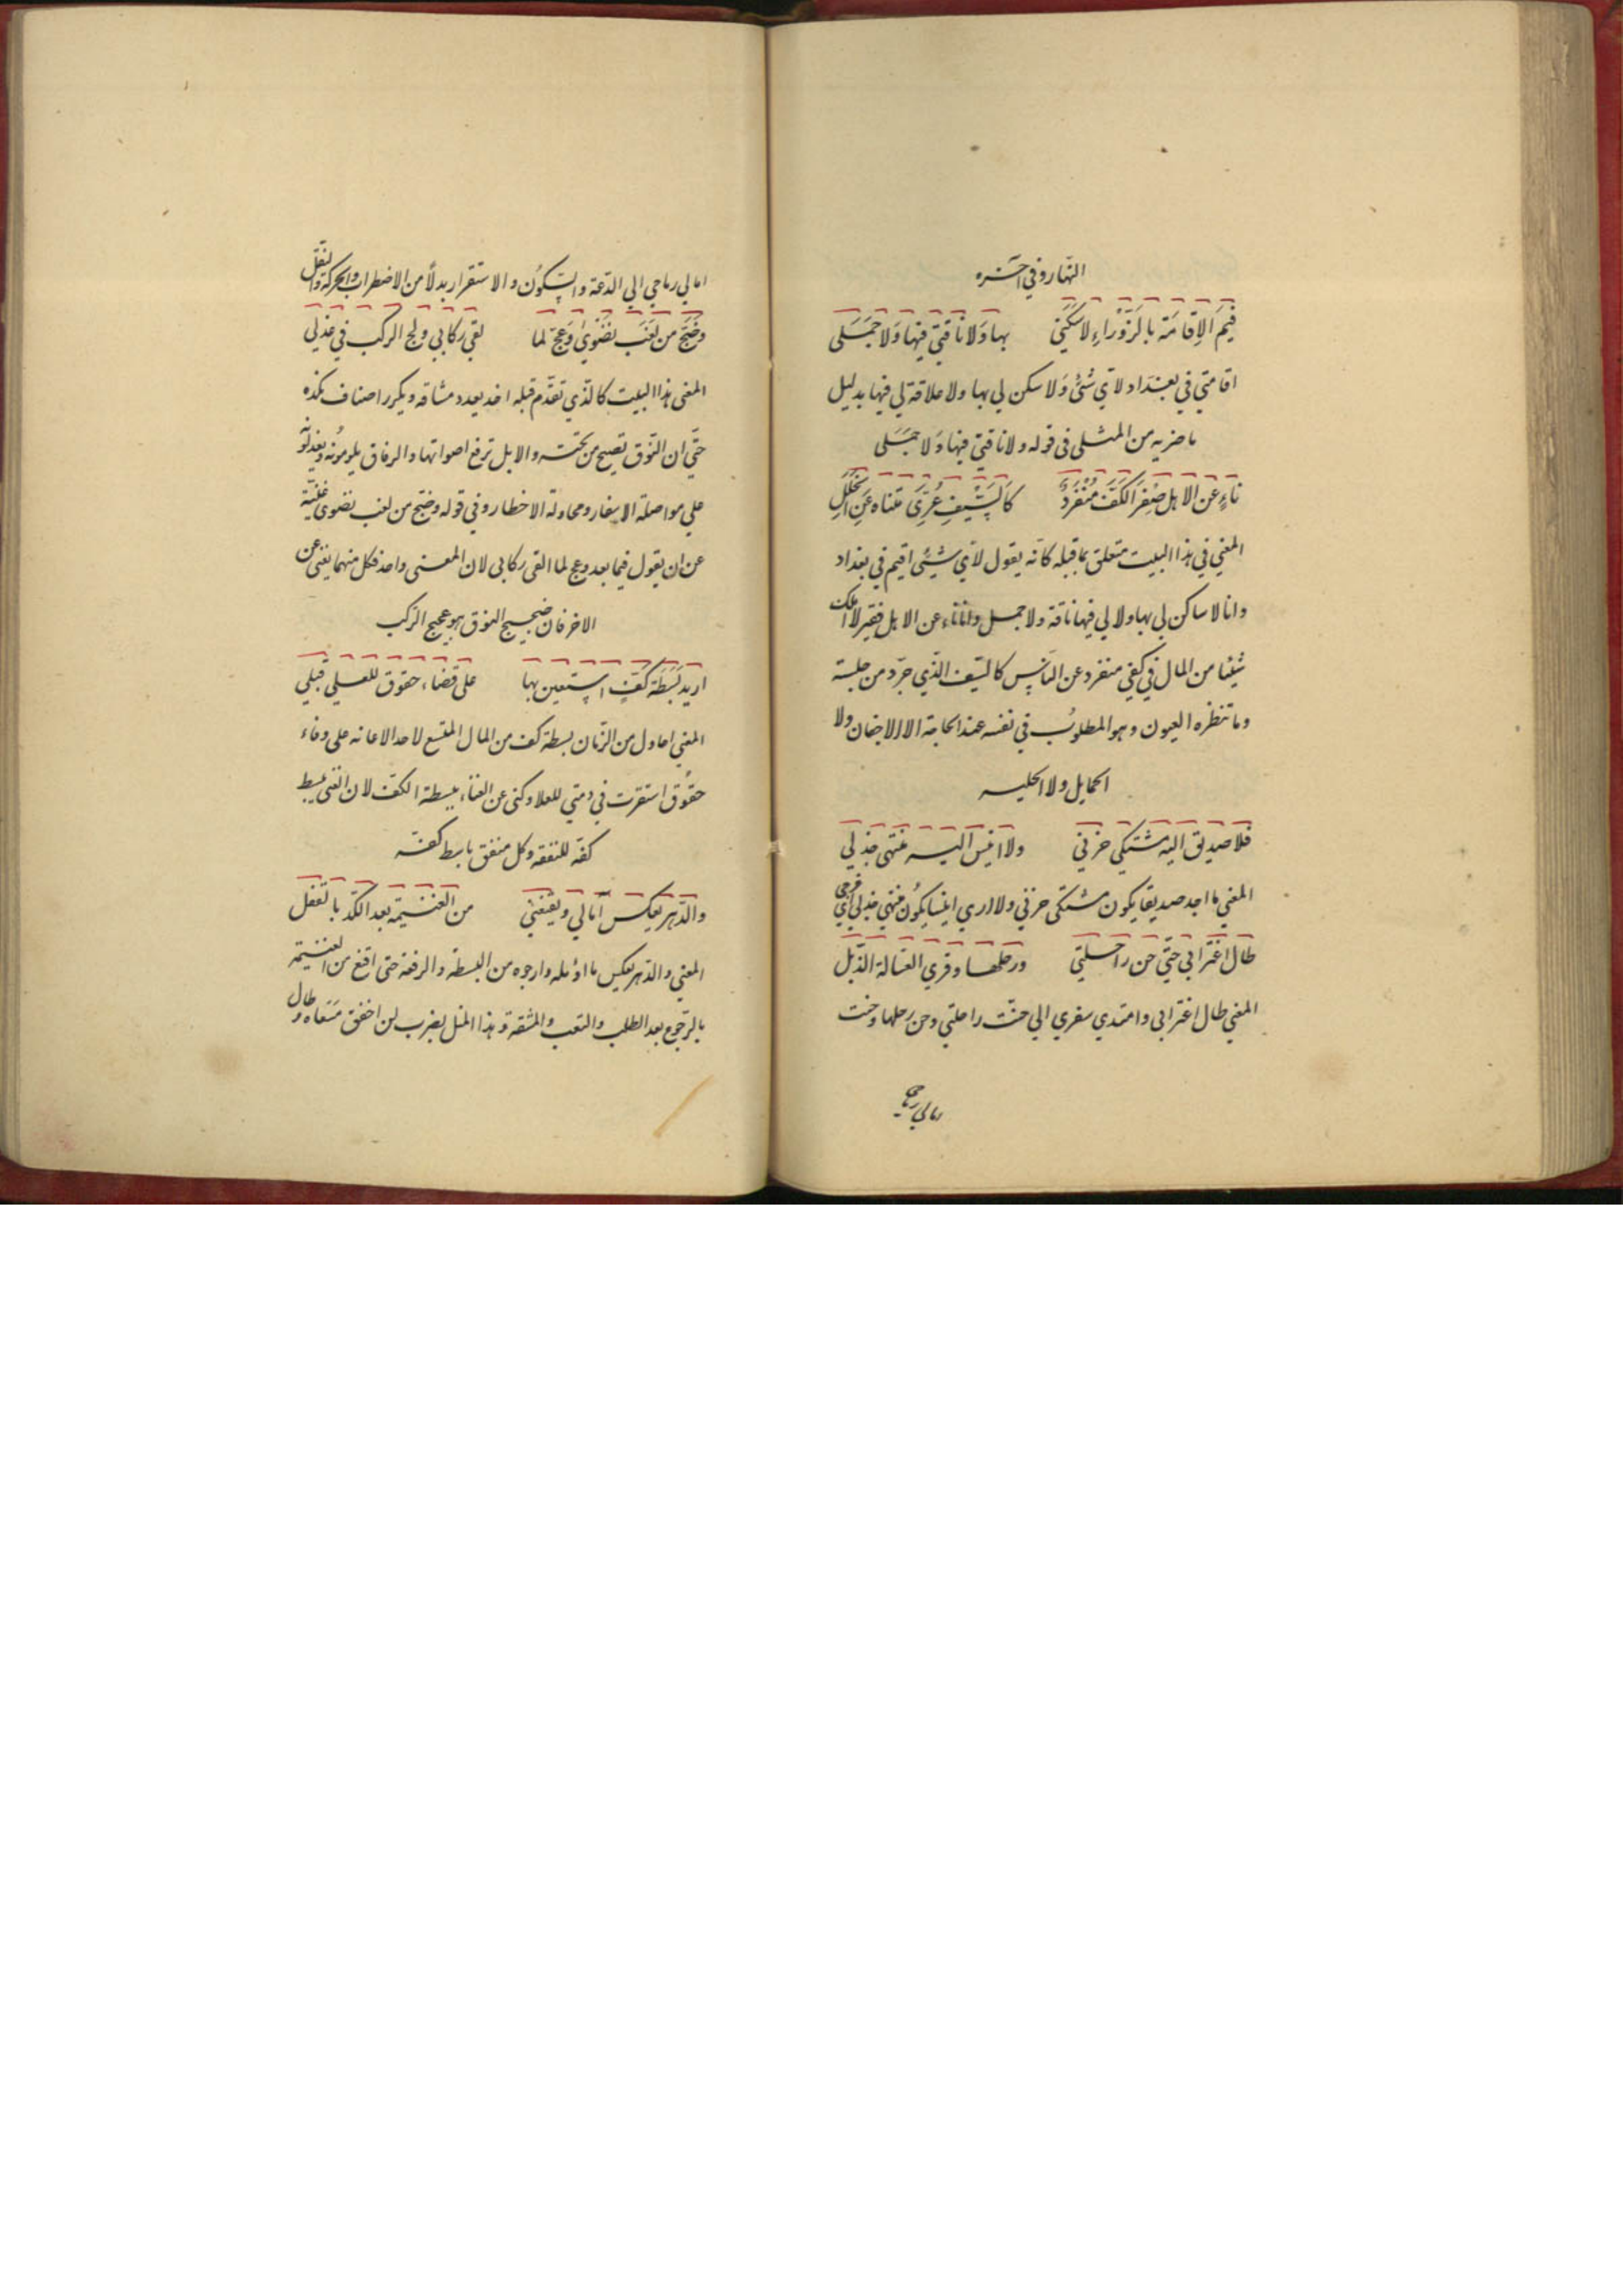 النهار وفي آخره
فِيمَ الاِقامَة بالزَّوْراءِ لا سَكَنِي بها وَلا ناقتي فيها وَلا جَمَلى
اقامتي في بغداد لاي شئ وَلا سكن لي بها ولا علاقة لي فيها بدليل
ما ضربه من المثل فى قوله ولا ناقتي فيها وَلا جمَلى
ناءٍ عن الاهل صِفر الكفّ مُنْفَردٌ كالسَّيفِ عُرِّيَ متناه عَنِ الخلَلِ
المعني في هذا البيت متعلق بما قبله كانه يقول لاي شيئى اقيم في بغداد
وانا لا ساكن لي بها ولا لي فيها ناقة ولا جمل وانا ناء عن الاهل فقير لا املك
شيئا من المال في كفي منفرد عن الناس كالسّيف الّذي جرّد من حلية
وما تنظره العيون وهو المطلوب في نفسه عند الحاجة الا الاجفان ولا
الحمايل ولا الحليه
فلا صديق اليه مشتكي حزني ولا انيس اليه منتهى جذلي
المعني ما اجد صديقا يكون مشتكى حزني ولا اري انيسا يكون منتهي جذلي اي فرحي
طال اغترابي حتّي حن راحلتي ورحلها وقري العسالة الذّبل
المعني طال اغترابي وامتدي سفري الي حنّت راحلتي وحن رحلها وحنت
امالي رماحي الي الدّعة والسّكون والاستقرار بدلاً من الاضطراب والحركة والنقل
وضَجّ من لَغَب نضوي وَعجّ لما لقي ركابي ولج الركب في عذلي
المعنى هذا البيت كالذي تقدّم قبله اخذ يعدد مشاقه ويكرر اصناف نكده
حتّي ان النّوق تصيح من تحته والابل ترفع اصواتها والرفاق يلومونه ويعذلونه
علي مواصلة الاسفار ومحاولة الاخطار وفي قوله وضج من لغب نضوى غنية
عن ان يقول فيما بعد وعج لما القى ركابى لان المعنى واحد فكل منهما يغنى عن
الاخر فان ضجيج النوق هو عجيج الركب
اريد بَسْطَة كفّ استعين بها على قضاء حقوق للعلي قبلي
المعني احاول من الزمان بسطة كف من المال المتسع لاحد الاعانه على وفاء
حقوق استقرت في ذمتي للعلا وكنى عن الغناء ببسطة الكف لان الغنى يبسط
كفه للنفقه وكل منفق باسط كفه
والدّهر يعكس آمالي ويقنعني من الغنيمة بعد الكدّ بالقفل
المعني والدهر يعكس ما اؤمله وارجوه من البسطة والرفعة حتى اقنع من الغنيمة
بالرّجوع بعد الطلب والتعب والمشقة وهذا المثل يضرب لمن اخفق مسعاه وطال